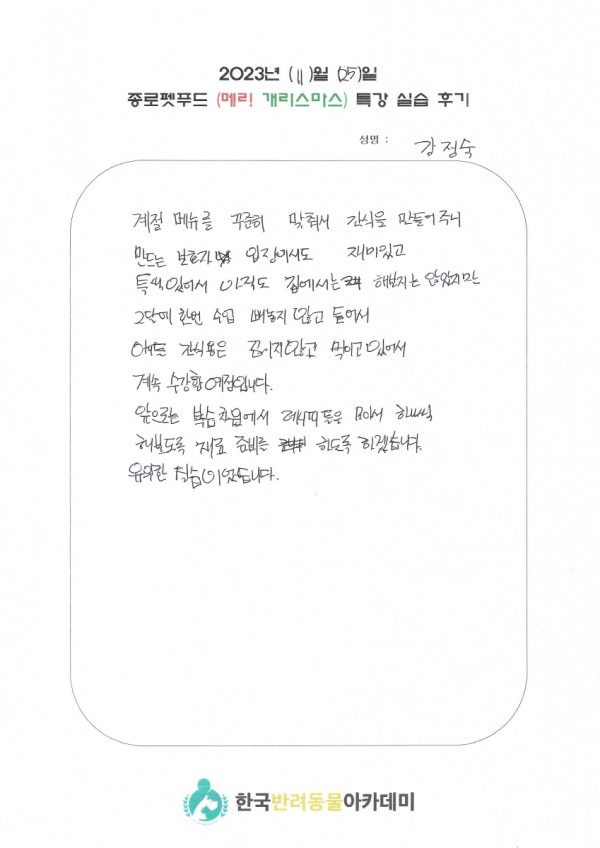 2023년 (11)월 (25)일
종로펫푸드 (메리! 개리스마스) 특강 실습 후기
성명 : 강정숙
계절 메뉴를 꾸준히 맞춰서 간식을 만들어주니
만드는 보호자 입장에서도 재미있고
특색있어서 아직도 집에서는 해보지는 않았지만
2달에 한번 수업 빼놓지 않고 들어서
애들 간식용은 끊이지않고 먹이고있어서
계속 수강할 예정입니다.
앞으로는 복습차원에서 레시피들은 모아서 하나씩
해보도록 재료 준비를 하도록 하겠습니다.
유익한 실습이었습니다.
한국반려동물아카데미